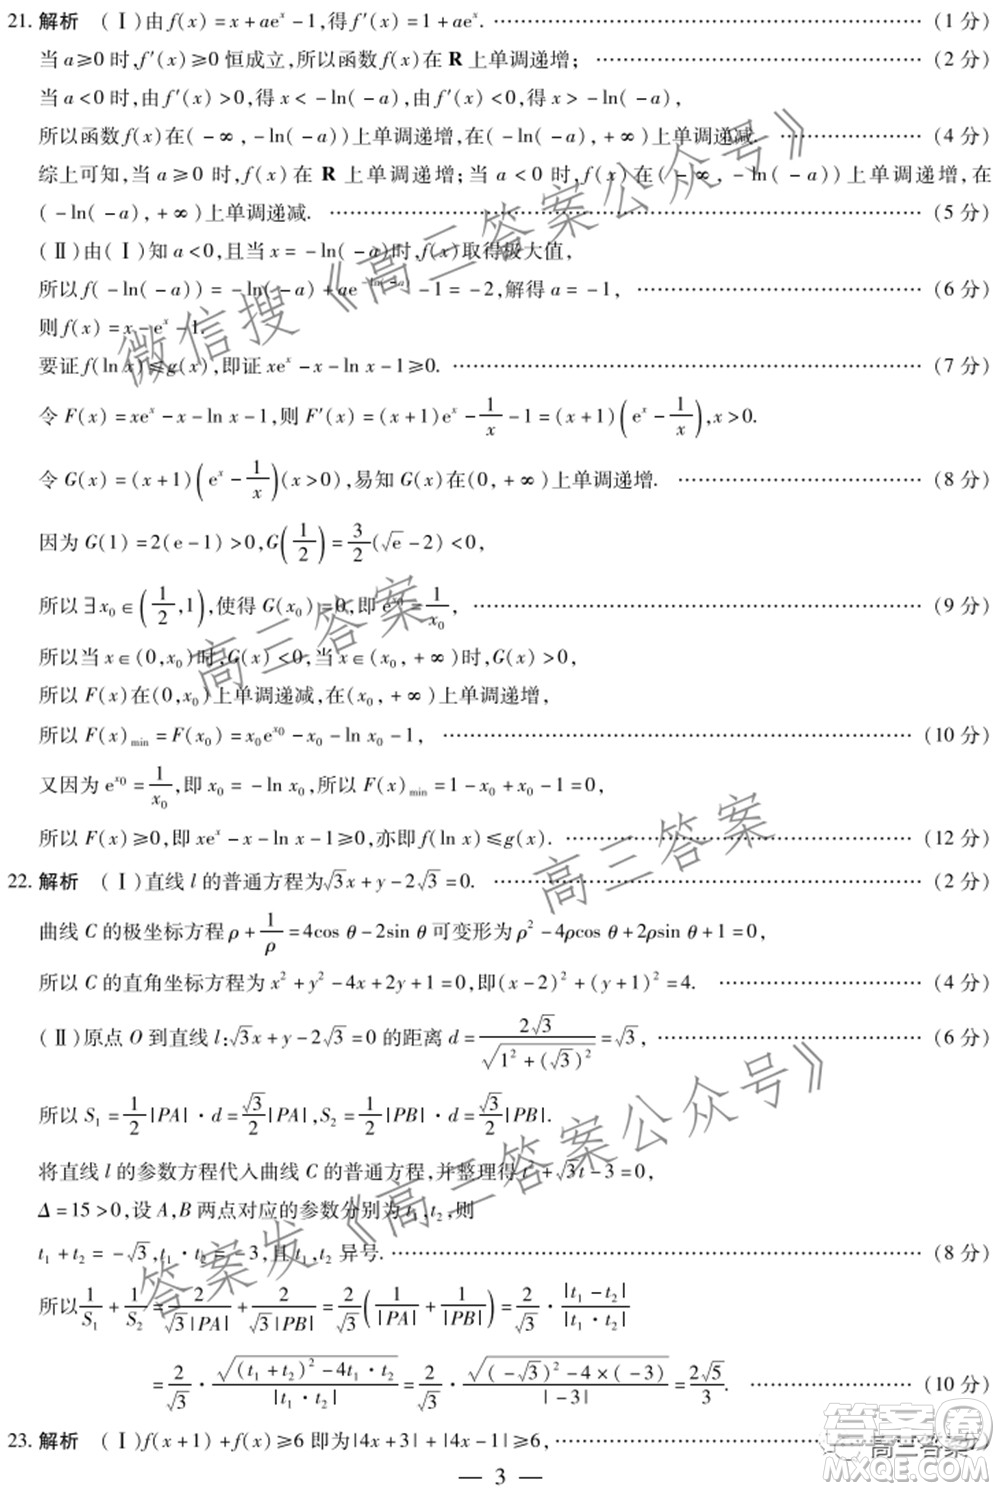 21. 解析 (Ⅰ)由f(x)=x+ae^x-1,得f′(x)=1+ae^x. ………… (1分)
当a≥0时,f′(x)≥0恒成立,所以函数f(x)在R上单调递增; ………… (2分)
当a<0时,由f′(x)>0,得x<-ln(-a),由f′(x)<0,得x>-ln(-a),
所以函数f(x)在(-∞,-ln(-a))上单调递增,在(-ln(-a),+∞)上单调递减. ………… (4分)
综上可知,当a≥0时,f(x)在R上单调递增;当a<0时,f(x)在(-∞,-ln(-a))上单调递增,在
(-ln(-a),+∞)上单调递减. ………… (5分)
(Ⅱ)由(Ⅰ)知a<0,且当x=-ln(-a)时,f(x)取得极大值,
所以f(-ln(-a))=-ln(-a)+ae^{-ln(-a)}-1=-2,解得a=-1, ………… (6分)
则f(x)=x-e^x-1.
要证f(ln x)≤g(x),即证xe^x-x-ln x-1≥0. ………… (7分)
令F(x)=xe^x-x-ln x-1,则F′(x)=(x+1)e^x-1/x-1=(x+1)(e^x-1/x),x>0.
令G(x)=(x+1)(e^x-1/x)(x>0),易知G(x)在(0,+∞)上单调递增. ………… (8分)
因为G(1)=2(e-1)>0,G(1/2)=3/2(√e-2)<0,
所以∃x₀∈(1/2,1),使得G(x₀)=0,即e^{x₀}=1/x₀, ………… (9分)
所以当x∈(0,x₀)时,G(x)<0,当x∈(x₀,+∞)时,G(x)>0,
所以F(x)在(0,x₀)上单调递减,在(x₀,+∞)上单调递增,
所以F(x)min=F(x₀)=x₀e^{x₀}-x₀-ln x₀-1, ………… (10分)
又因为e^{x₀}=1/x₀,即x₀=-ln x₀,所以F(x)min=1-x₀+x₀-1=0,
所以F(x)≥0,即xe^x-x-ln x-1≥0,亦即f(ln x)≤g(x). ………… (12分)
22. 解析 (Ⅰ)直线l的普通方程为√3x+y-2√3=0. ………… (2分)
曲线C的极坐标方程ρ+1/ρ=4cos θ-2sin θ可变形为ρ²-4ρcos θ+2ρsin θ+1=0,
所以C的直角坐标方程为x²+y²-4x+2y+1=0,即(x-2)²+(y+1)²=4. ………… (4分)
(Ⅱ)原点O到直线l:√3x+y-2√3=0的距离d=2√3/√(1²+(√3)²)=√3, ………… (6分)
所以S₁=1/2|PA|·d=√3/2|PA|,S₂=1/2|PB|·d=√3/2|PB|.
将直线l的参数方程代入曲线C的普通方程,并整理得t²+√3t-3=0,
Δ=15>0,设A,B两点对应的参数分别为t₁,t₂,则
t₁+t₂=-√3,t₁·t₂=-3,且t₁,t₂异号. ………… (8分)
所以1/S₁+1/S₂=2/(√3|PA|)+2/(√3|PB|)=2/√3(1/|PA|+1/|PB|)=2/√3·|t₁-t₂|/|t₁·t₂|
=2/√3·√((t₁+t₂)²-4t₁·t₂)/|t₁·t₂|=2/√3·√((-√3)²-4×(-3))/|-3|=2√5/3. ………… (10分)
23. 解析 (Ⅰ)f(x+1)+f(x)≥6即为|4x+3|+|4x-1|≥6, …………
— 3 —
微信搜《高三答案公众号》
高三答案
高三答案
答案发《高三答案公众号》
高三答案
答案圈
MXQE.COM